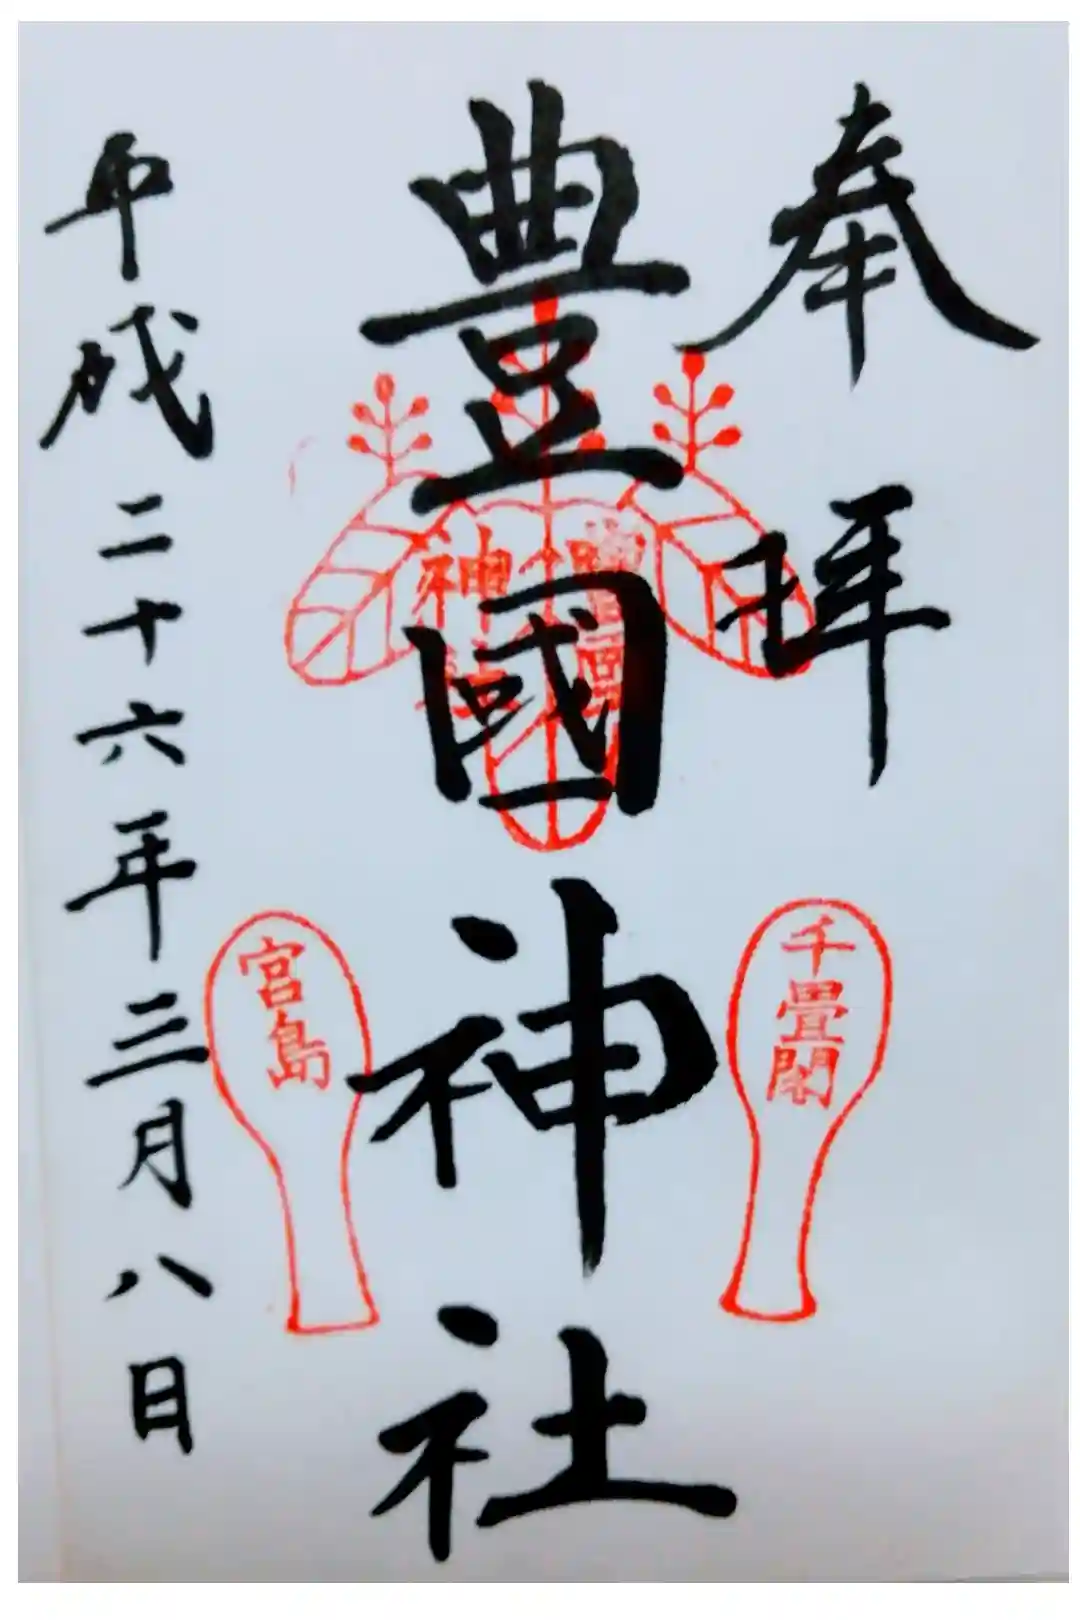 奉拝
豊國神社
千畳閣
神社
宮島
平成二十六年三月八日